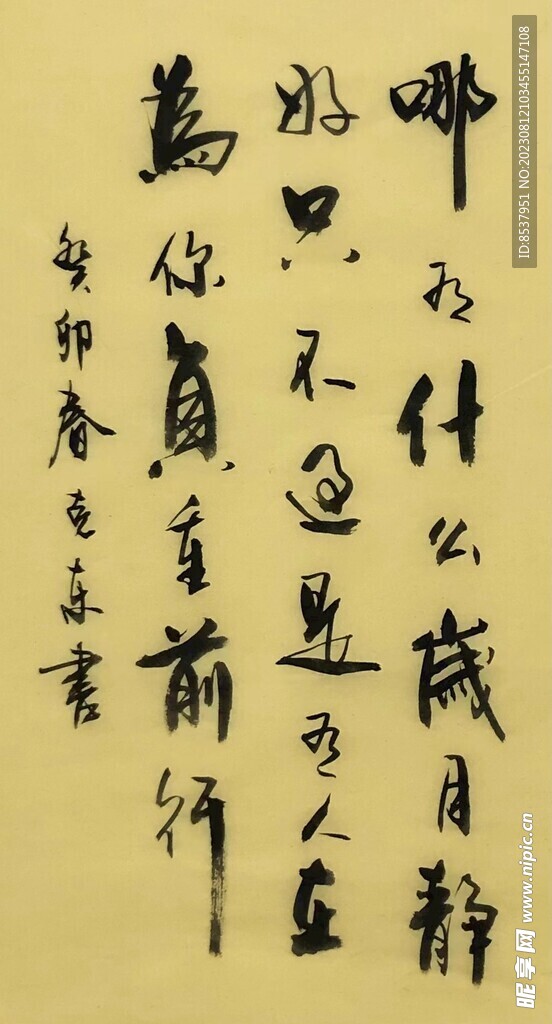 哪有什么歲月靜
好只不过是有人在
為你負重前行
癸卯春克东書
ID:8537951 NO:20230812103455147108
昵享网 www.nipic.cn